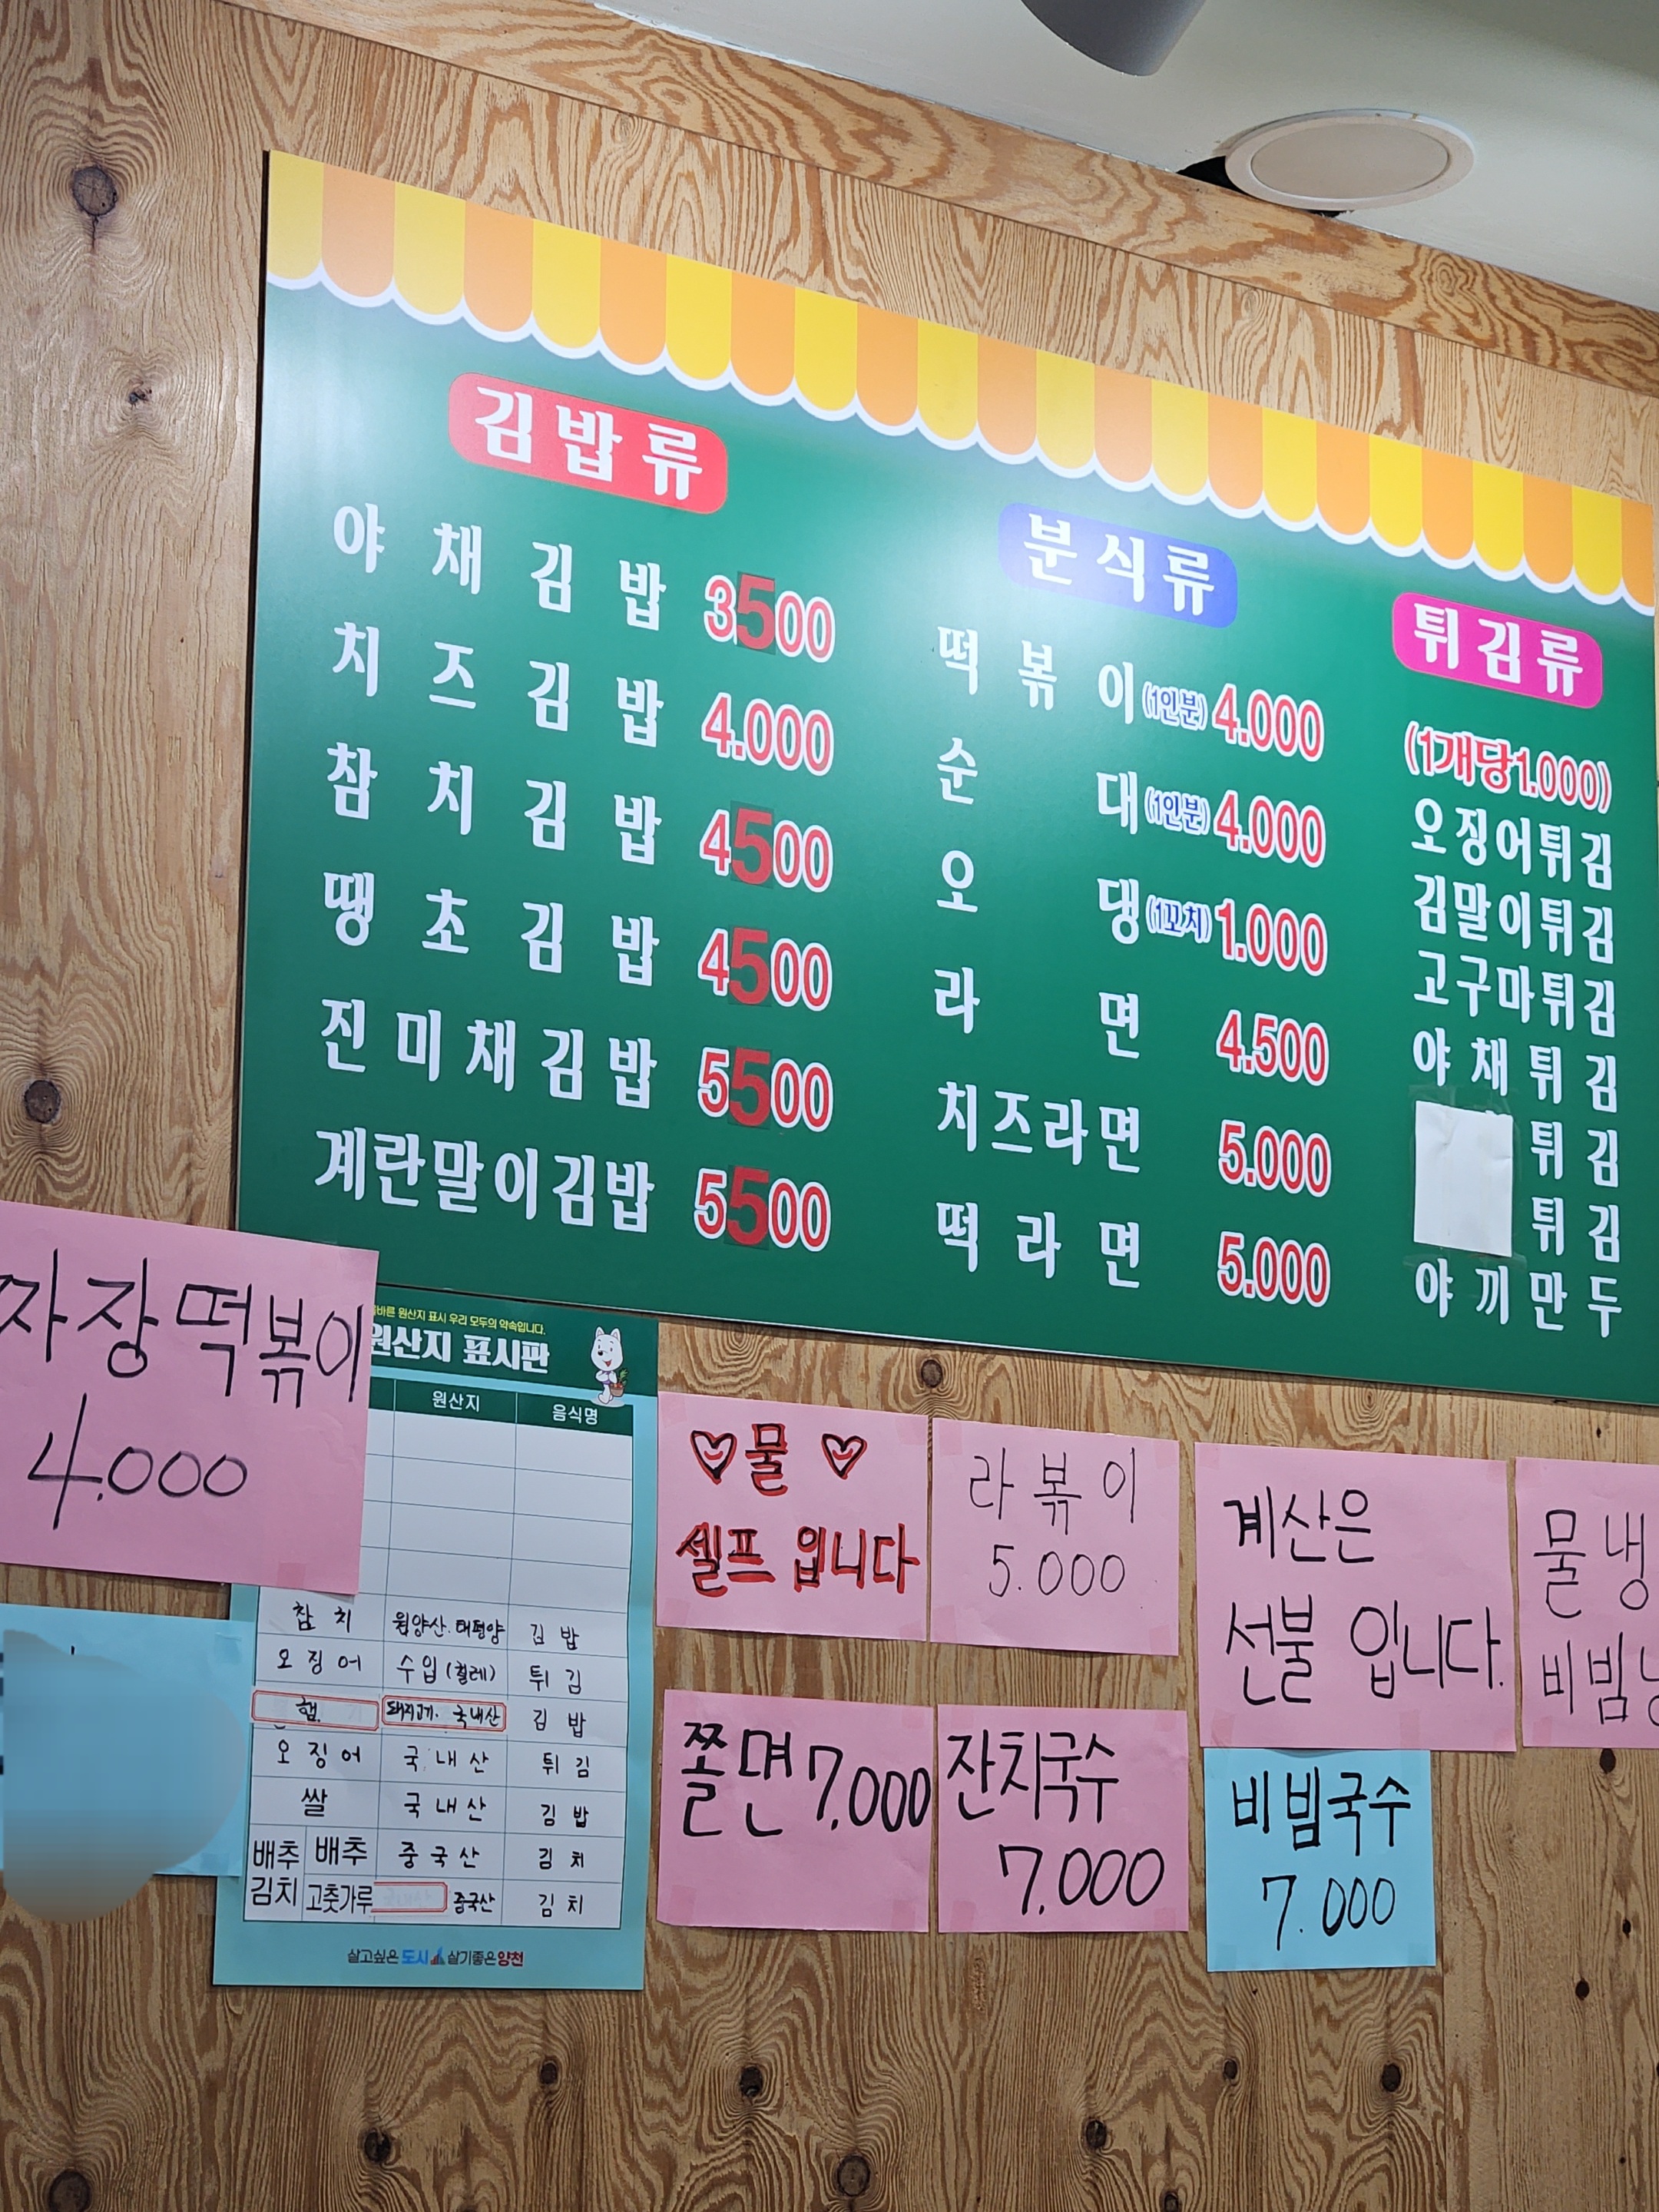 김밥류
야채김밥 3500
치즈김밥 4.000
참치김밥 4500
땡초김밥 4500
진미채김밥 5500
계란말이김밥 5500
분식류
떡볶이(1인분) 4.000
순대(1인분) 4.000
오댕(1꼬치) 1.000
라면 4.500
치즈라면 5.000
떡라면 5.000
튀김류
(1개당1.000)
오징어튀김
김말이튀김
고구마튀김
야채튀김
튀김
튀김
야끼만두
짜장떡볶이
4.000
바른 원산지 표시 우리 모두의 약속입니다.
원산지 표시판
원산지 음식명
참치 원양산.태평양 김밥
오징어 수입(칠레) 튀김
햄 돼지고기. 국내산 김밥
오징어 국내산 튀김
쌀 국내산 김밥
배추김치 배추 중국산 김치
고춧가루 중국산 김치
살고싶은 도시 살기좋은 양천
♡물♡
셀프 입니다
라볶이
5.000
계산은
선불 입니다.
물냉
비빔
쫄면 7.000
잔치국수
7.000
비빔국수
7.000